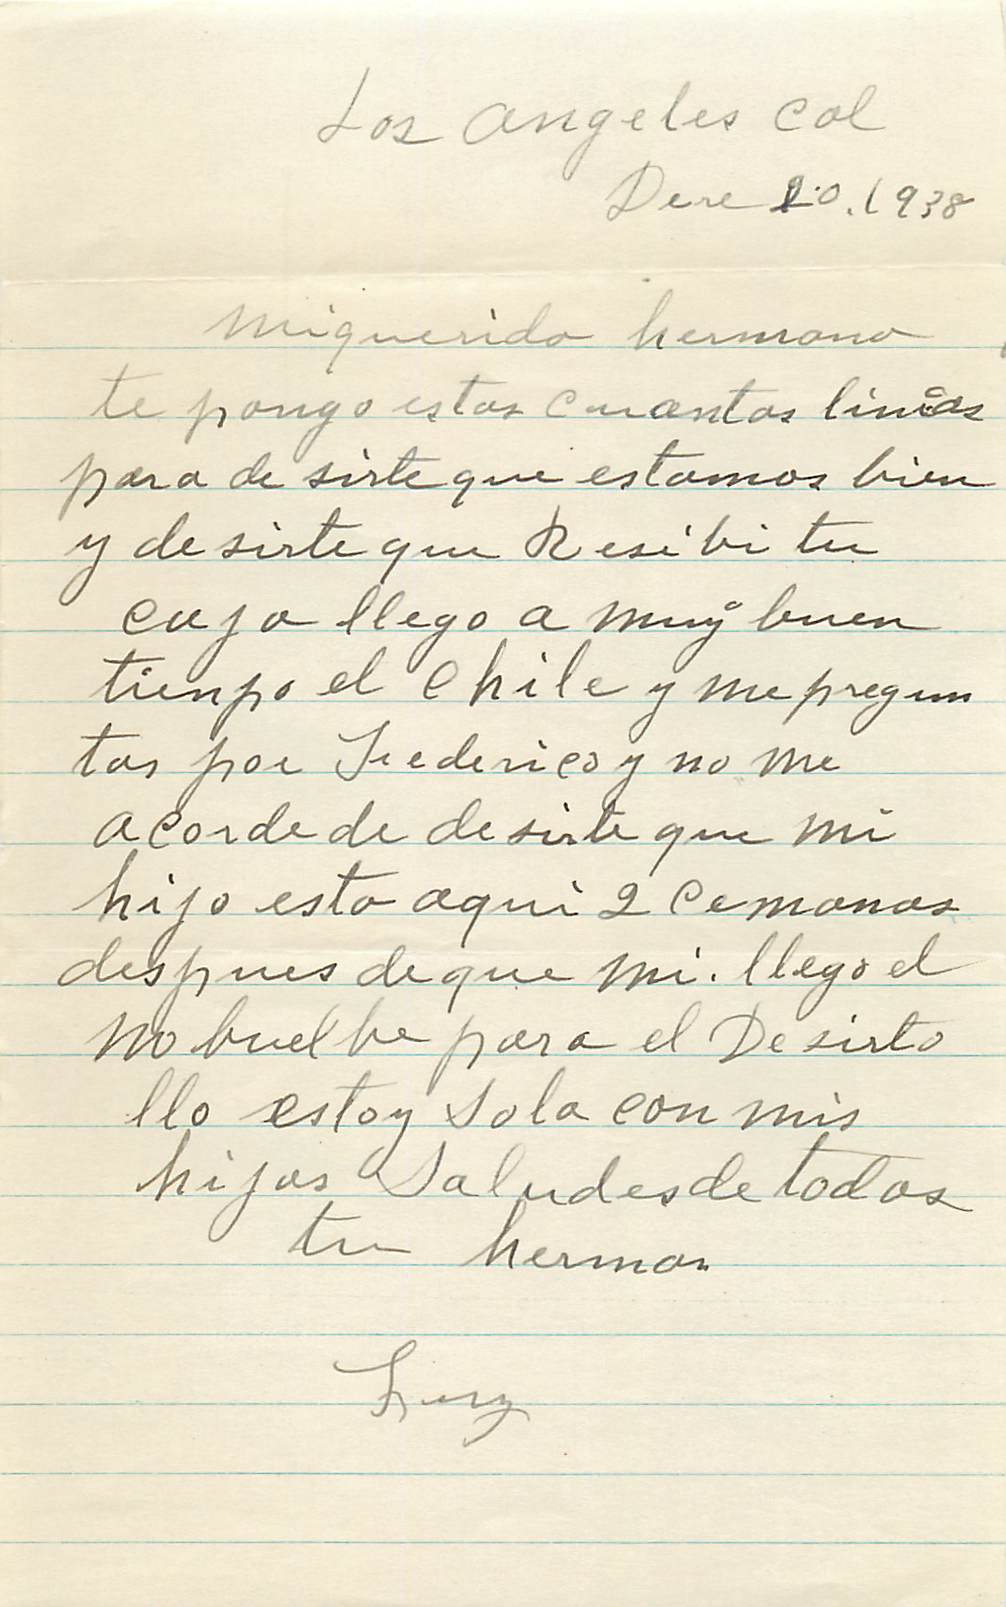 Los Angeles Cal
Dece 20. 1938
Mi querido hermano
te pongo estas cuantas linias
para de sirte que estamos bien
y de sirte que Resibi tu
caja llego a muy buen
tienpo el Chile y me pregun
tas por Frederico y no me
acorde de de sirte que mi
hijo esta aqui 2 Cemanas
despues de que mi. llego el
no buelbe para el Desirto
llo estoy Sola con mis
hijas Saludes de todas
tu herman
Luz